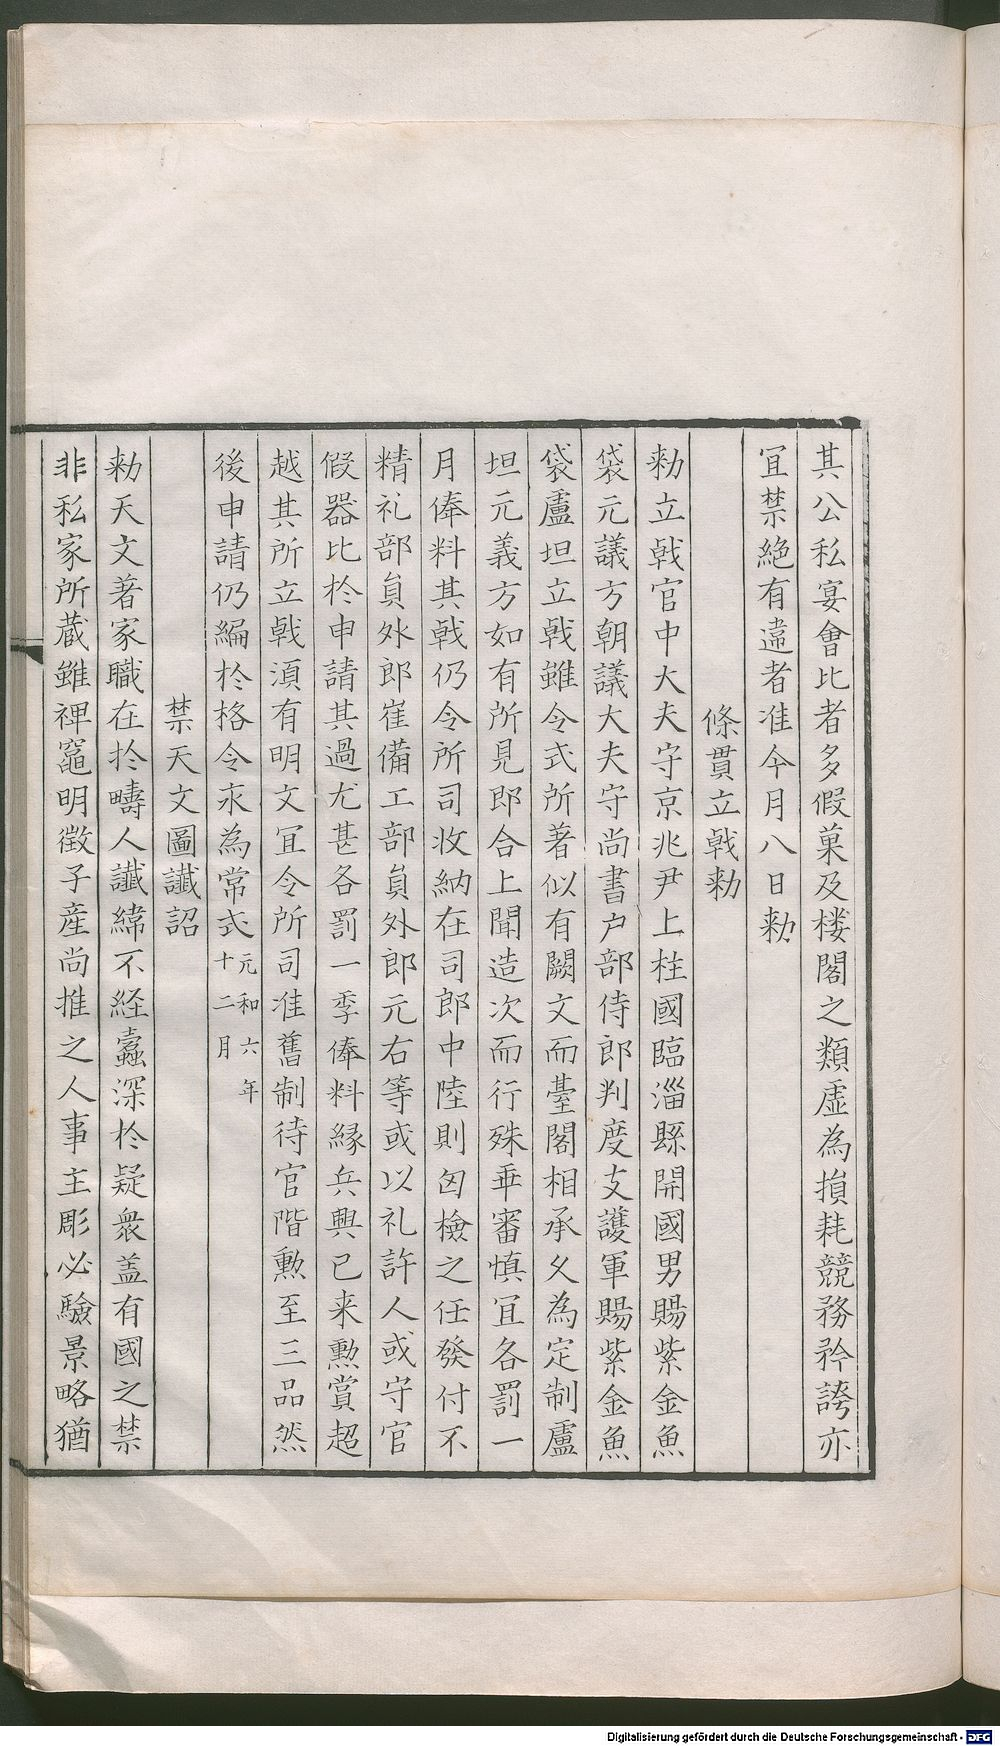 其公私宴會比者多假菓及楼閣之類虛為損耗競務矜誇亦
冝禁絶有違者准今月八日勑
條貫立戟勑
勑立戟官中大夫守京兆尹上柱國臨淄縣開國男賜紫金魚
袋元議方朝議大夫守尚書户部侍郎判度支護軍賜紫金魚
袋盧坦立戟雖令式所著似有闕文而臺閣相承久為定制盧
坦元義方如有所見即合上聞造次而行殊乖審慎冝各罰一
月俸料其戟仍令所司收納在司郎中陸則囟檢之任發付不
精礼部貟外郎崔備工部貟外郎元右等或以礼許人或守官
假器比扵申請其過尤甚各罰一季俸料縁兵興已来勲賞超
越其所立戟湏有明文冝令所司准舊制待官階勲至三品然
後申請仍編扵格令永為常式元和六年十二月
禁天文圖讖詔
勑天文著家職在扵疇人讖緯不経蠹深扵疑衆盖有國之禁
非私家所蔵雖裨竈明徵子産尚推之人事主彫必驗景略猶
Digitalisierung gefördert durch die Deutsche Forschungsgemeinschaft - DFG